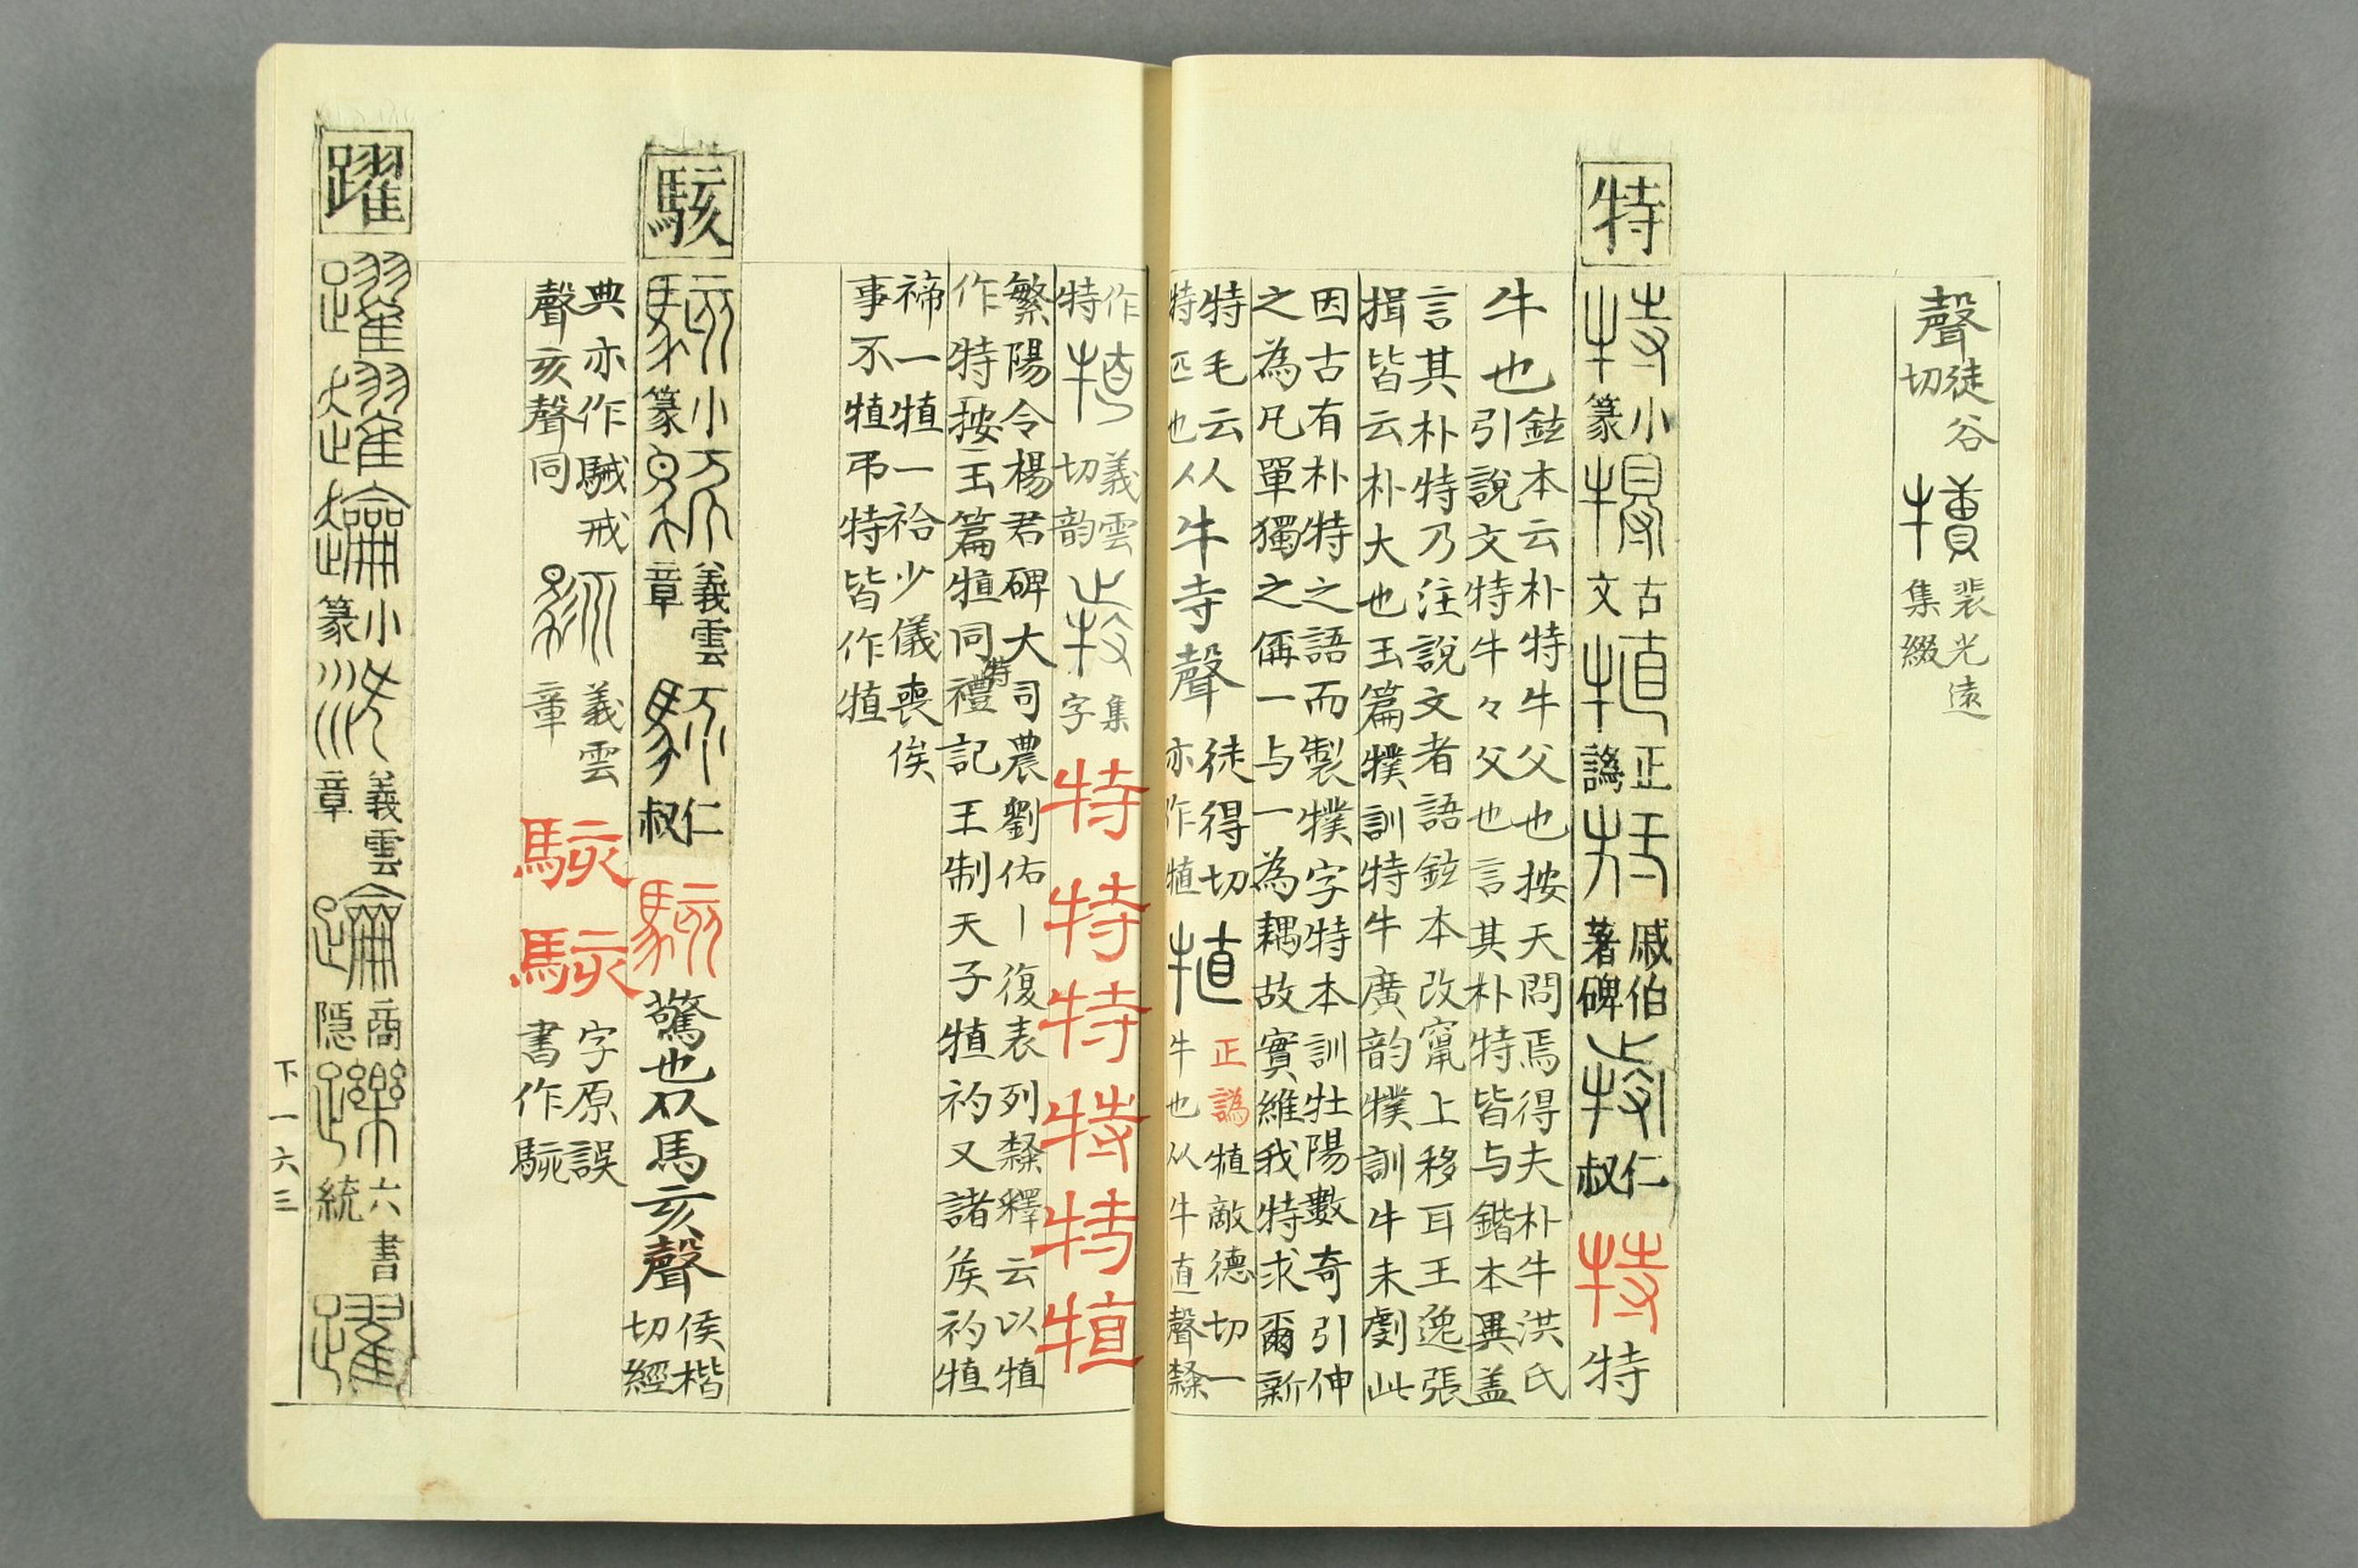 聲徒谷切 犢裴光遠集綴
特 特小篆 古文 犆正譌 特戚伯著碑 特仁叔 特 特
牛也鉉本云朴特牛父也按天問焉得夫朴牛洪氏
引說文特牛々父也言其朴特皆与鍇本異盖
言其朴特乃注說文者語鉉本改竄上移耳王逸張
揖皆云朴大也玉篇㹒訓特牛廣韵㹒訓牛未劇此
因古有朴特之語而製㹒字特本訓牡陽數奇引伸
之為凡單獨之偁一与一為耦故實維我特求爾新
特毛云从牛寺聲徒得切 犆正譌犆敵德切一
特匹也 亦作犆 牛也从牛直聲隸
作特 義雲切韵 集字 特特特特特犆
繁陽令楊君碑大司農劉佑丨復表列隸釋云以犆
作特按玉篇犆同特禮記王制天子犆礿又諸矦礿犆
禘一犆一祫少儀喪俟
事不犆弔特皆作犆
駭 駭小篆 義雲章 仁叔 駭 驚也从馬亥聲侯楷切經
典亦作駴戒 義雲章 駭駭字原誤書作駭
聲亥聲同
躍 躍 小篆 義雲章 商隱 六書統 躍
下一六三